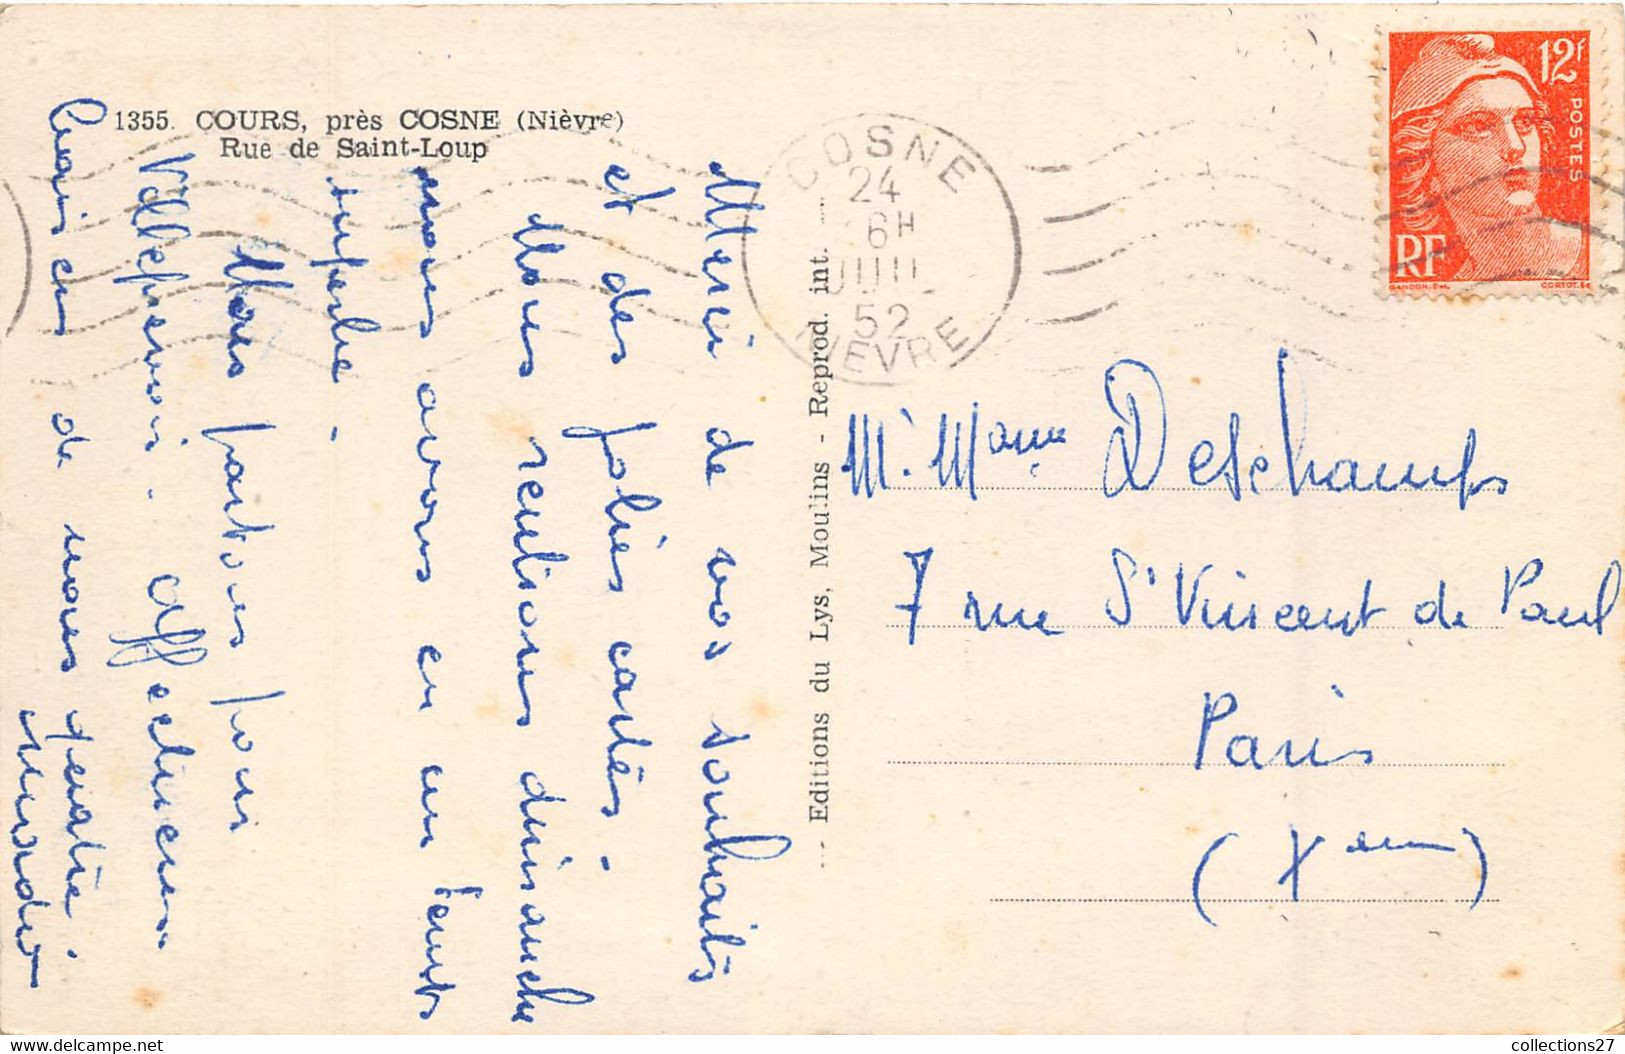 1355. COURS, près COSNE (Nièvre)
Rue de Saint-Loup
Merci de vos souhaits
et des jolies cartes.
Nous rentrons dimanche
nous avons eu un temps
superbe.
Nous partons pour
Affectueux
baisers de nous quatre.
--- Editions du Lys, Moulins - Reprod. int.
COSNE
24
6H
JUIL
52
NIEVRE
12F
POSTES
RF
GANDON.DEL.
CORTOT.SC
Mr. Mame Deschamps
7 rue St Vincent de Paul
Paris
(Xeme)
collections27